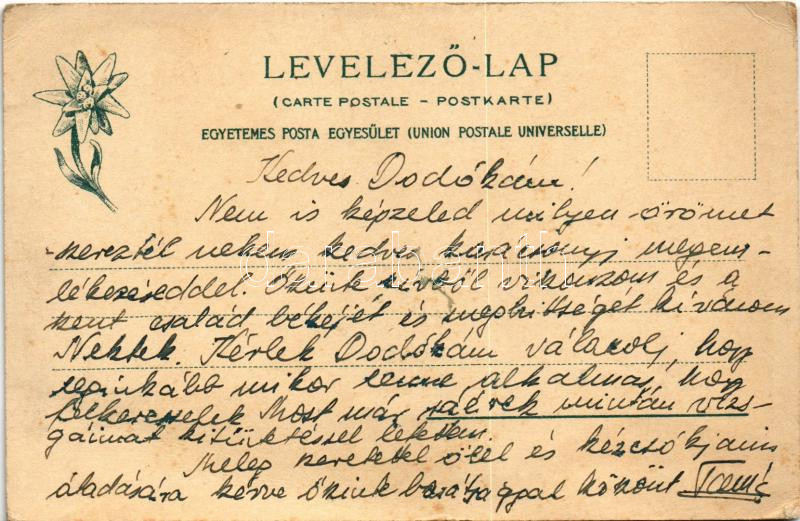 LEVELEZŐ-LAP
(CARTE POSTALE – POSTKARTE)
EGYETEMES POSTA EGYESÜLET (UNION POSTALE UNIVERSELLE)
Kedves Dodókám!
Nem is képzeled milyen örömet
szereztél nekem kedves karácsonyi megem-
lékezéseddel. Őszinte szívből viszonzom és a
szent család békéjét és meghittségét kívánom
Nektek. Kérlek Dodókám válaszolj, hogy
leginkább mikor lenne alkalmas, hogy
felkeresselek Most már ráérek miután vizs-
gáimat kitüntetéssel letettem.
Meleg szeretettel ölel és kézcsókjaim
átadására kérve őszinte barátsággal köszönt Tamás